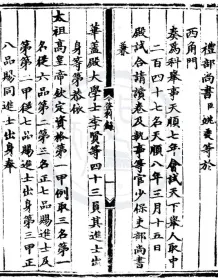 禮部尚書臣姚夔等於
西角門
奏為科舉事天順七年會試天下舉人取中
二百四十七名天順八年三月十五日
殿試合請讀卷及執事等官少保吏部尚書
兼
華蓋殿大學士李賢等四十三員其進士出
身等第恭依
太祖高皇帝欽定資格第一甲例取三名第一
名從六品第二第三名正七品賜進士及
第第二甲從七品賜進士出身第三甲正
八品賜同進士出身奉